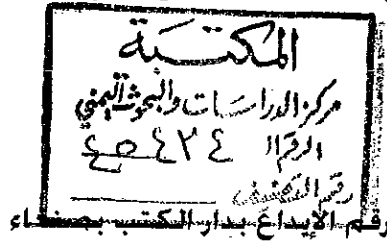 المكتبة
مركز الدراسات والبحوث اليمني
الرقم ٤٥٤٣٤
رقم التصنيف
رقم الإيداع بدار الكتب بصنعاء